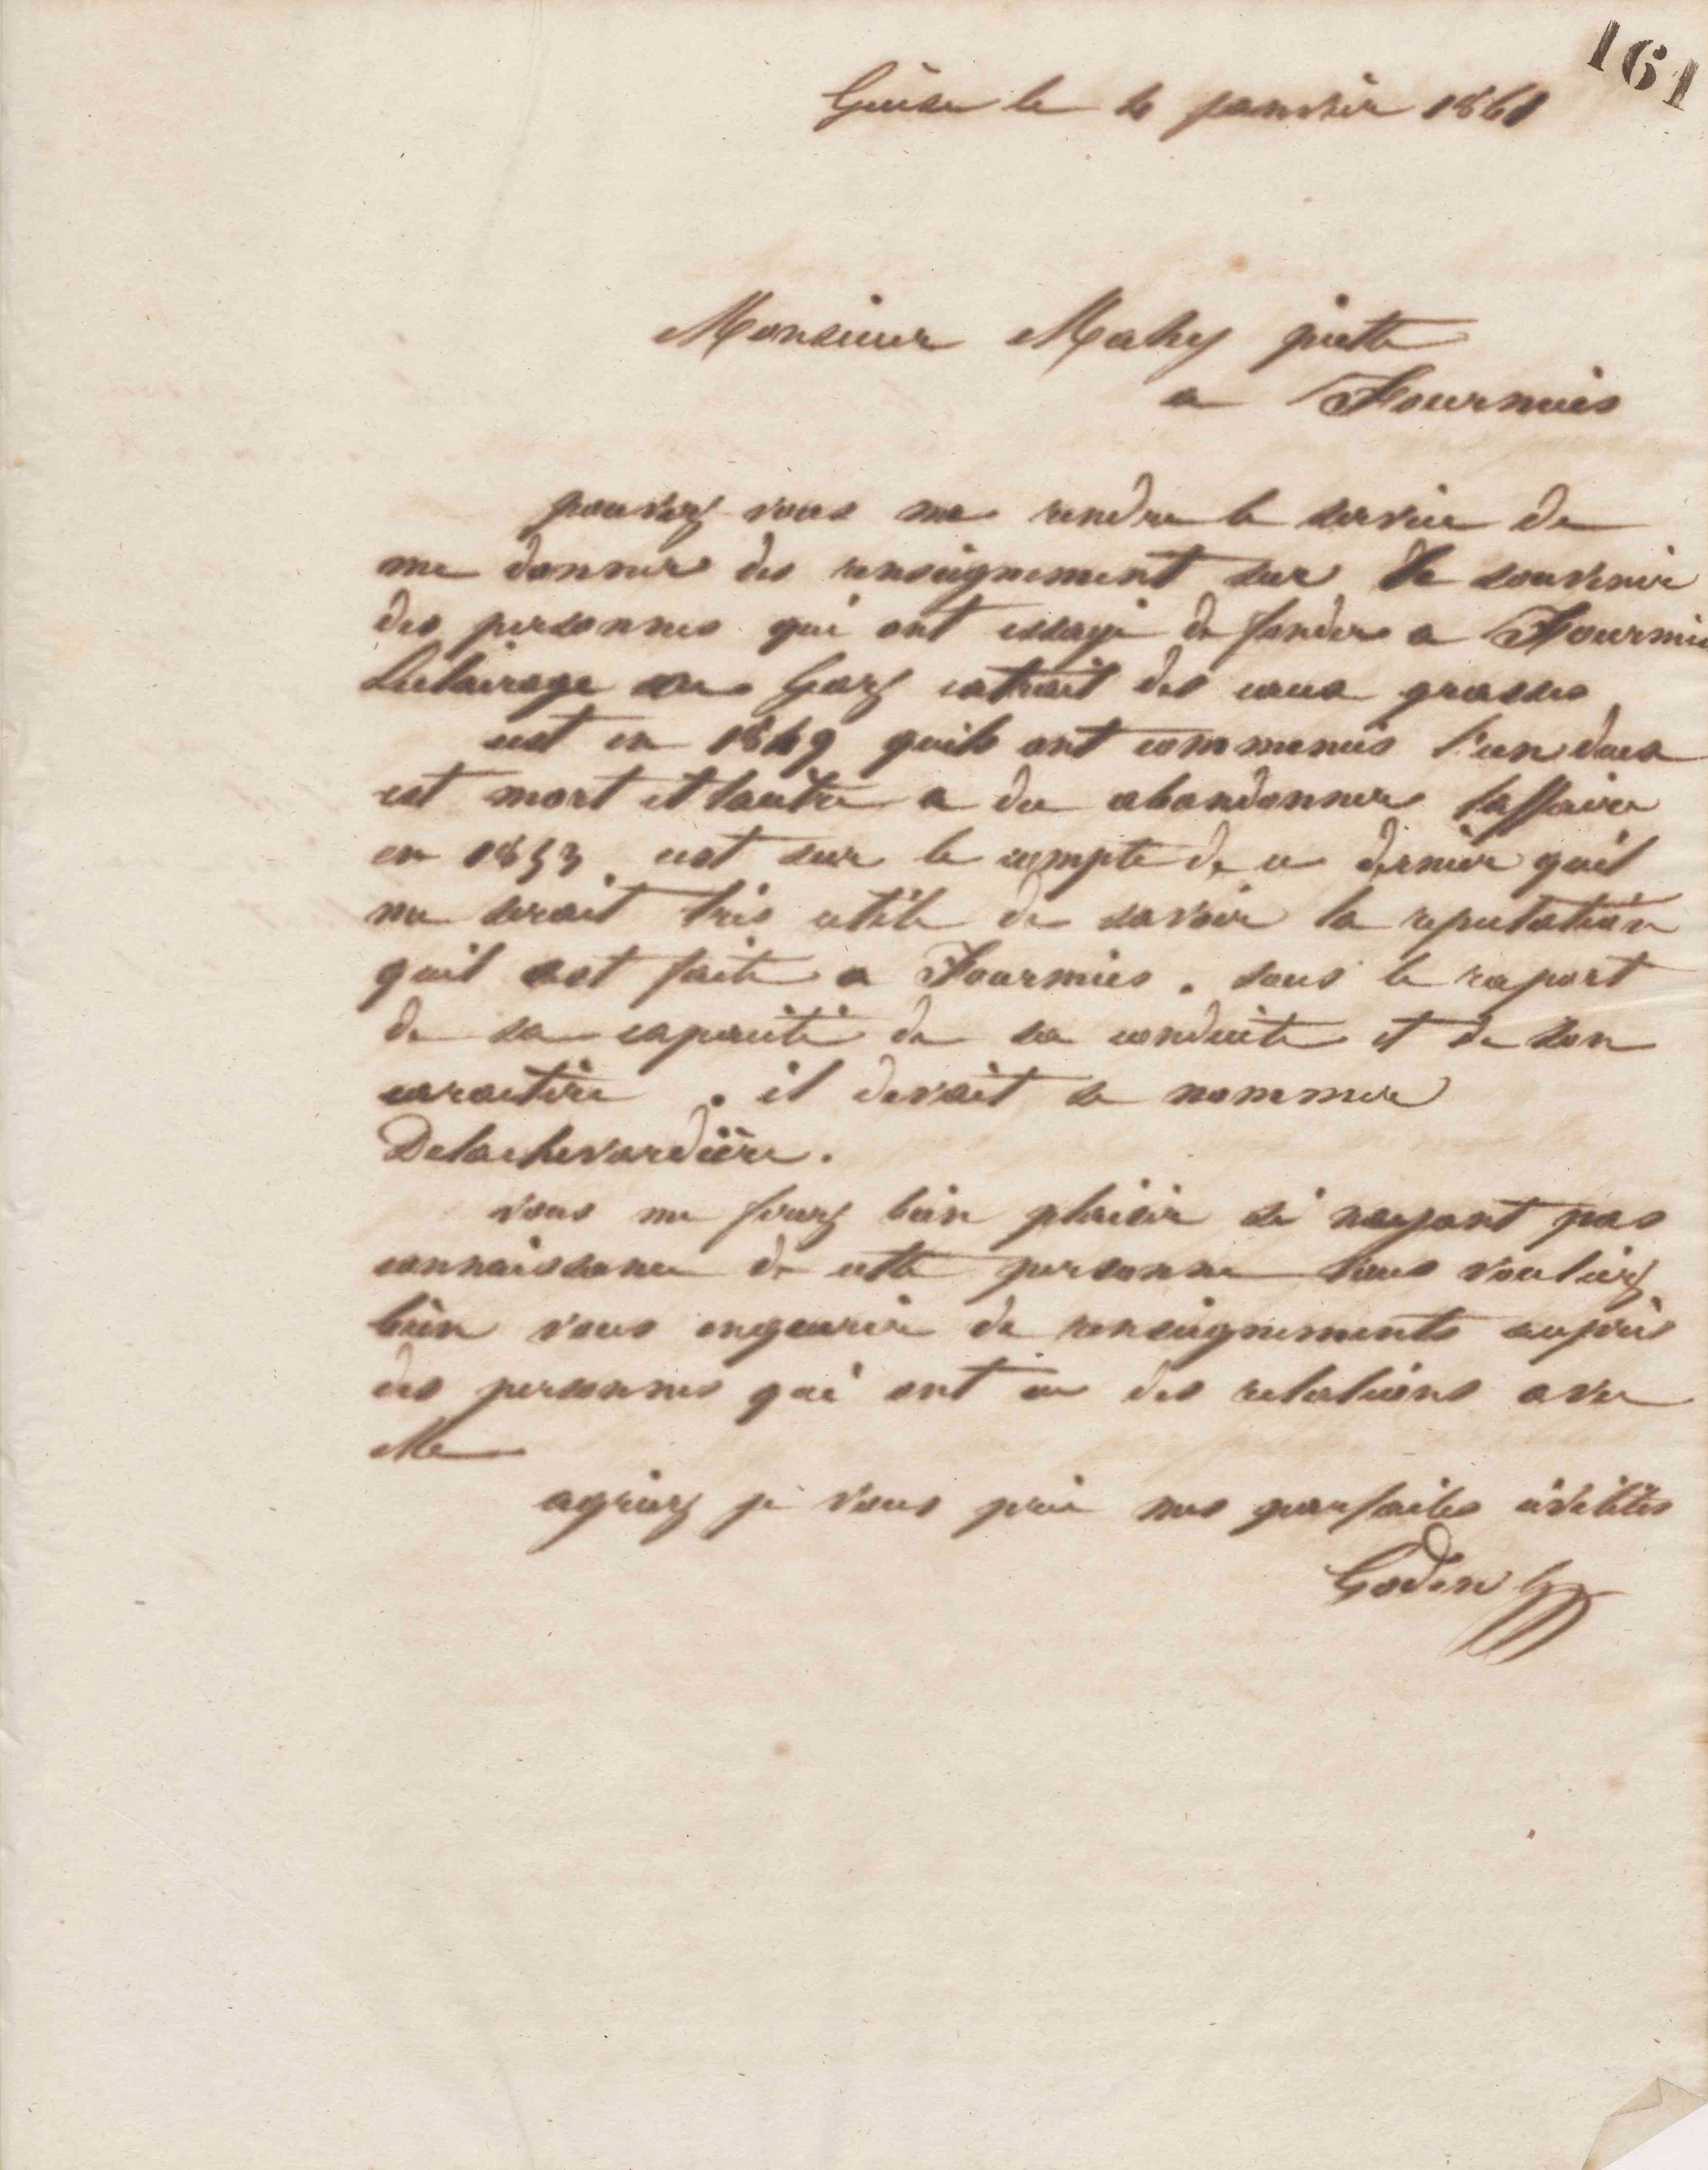 161
Guise le 4 janvier 1861
Monsieur Mahy piette
a Fourmies
pouvez vous me rendre le service de
me donner des renseignement sur le souvenir
des personnes qui ont essayé de fonder a Fourmies
Leclairage au Gaz extrait des eaux grasses
cest en 1849 quils ont commencés l'un deux
est mort et lautre a du abandonner laffaire
en 1853. cest sur le compte de ce dernier quil
me serait très utile de savoir la reputation
quil sest faite a Fourmies. sous le raport
de sa capacité de sa conduite et de son
caractère. il devait se nommer
Delachevardière.
vous me ferez bien plaisir si nayant pas
connaissance de cette personne vous vouliez
bien vous enquerir de renseignements auprès
des personnes qui ont eu des relations avec
elle
agréez je vous prie mes parfaites civilités
Godin